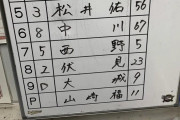 5 3 松井佑 56
6 8 中川 67
7 5 西野 5
8 2 伏見 23
9 D 大城 9
P 山崎福 11